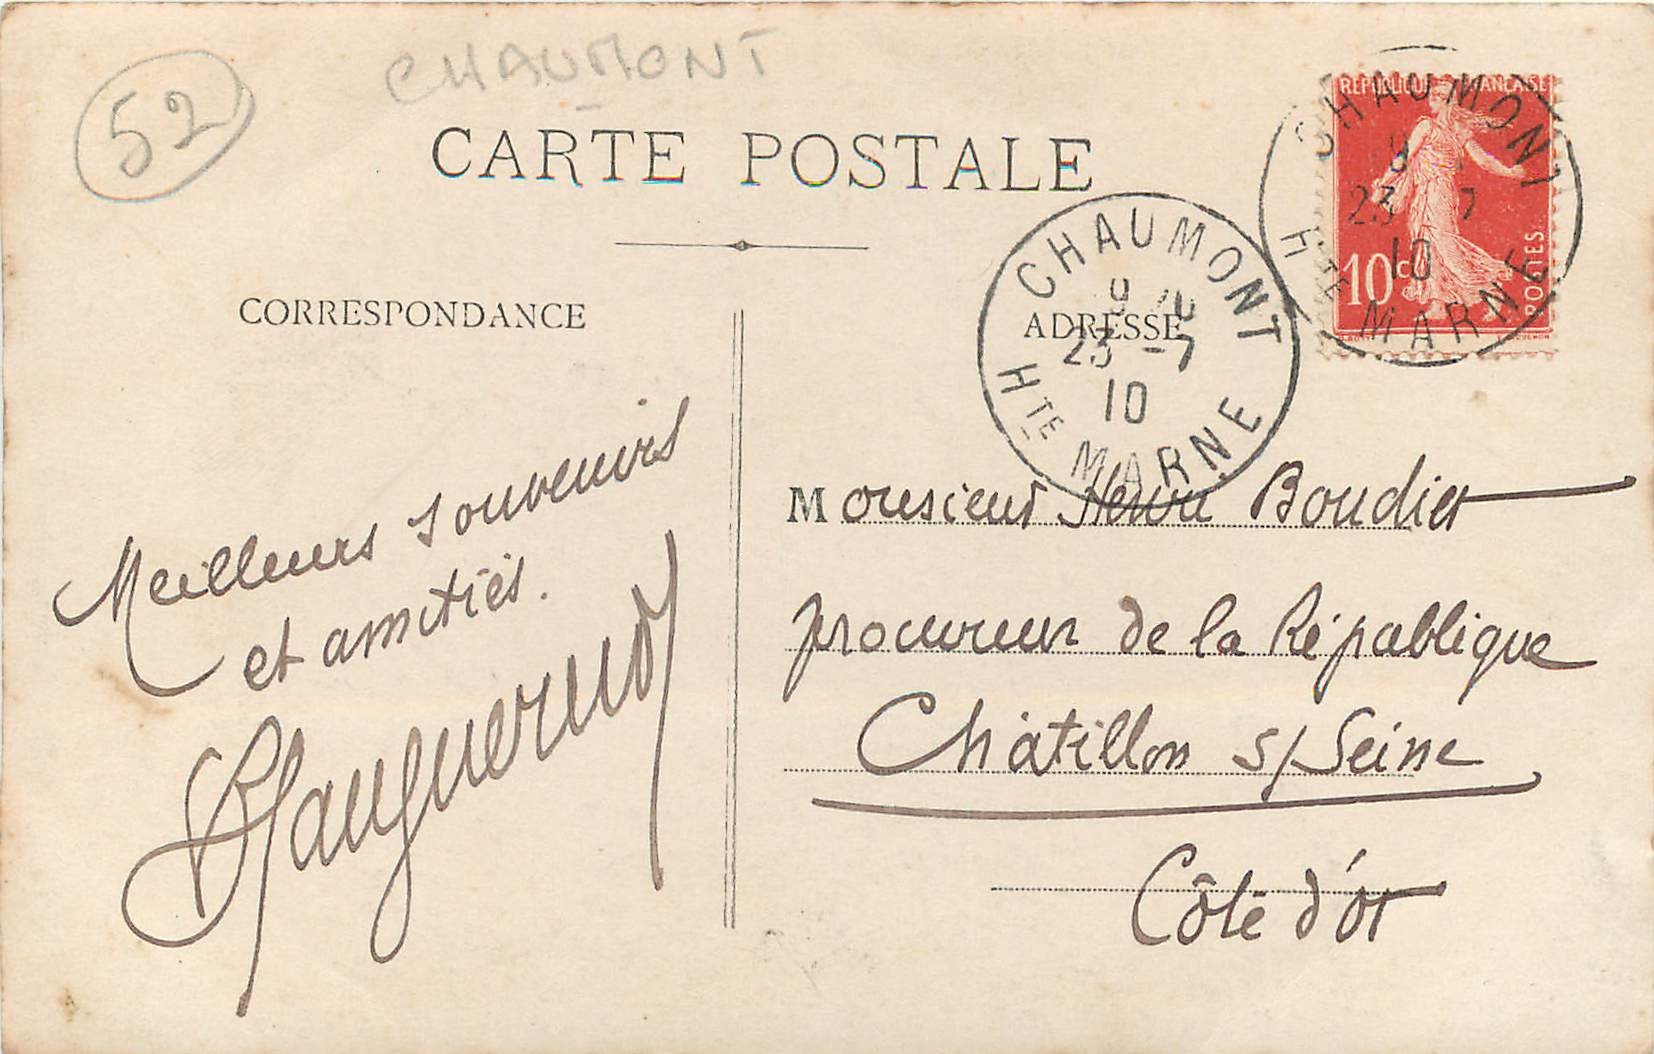 52
CHAUMONT
CARTE POSTALE
CORRESPONDANCE
ADRESSE
CHAUMONT
23 -7
10
Hte MARNE
REPUBLIQUE FRANÇAISE
10c
POSTES
CHAUMONT
23 7
10
Hte MARNE
Meilleurs souvenirs
et amitiés.
Monsieur Henri Boudier
procureur de la République
Châtillon s/Seine
Côte d'or